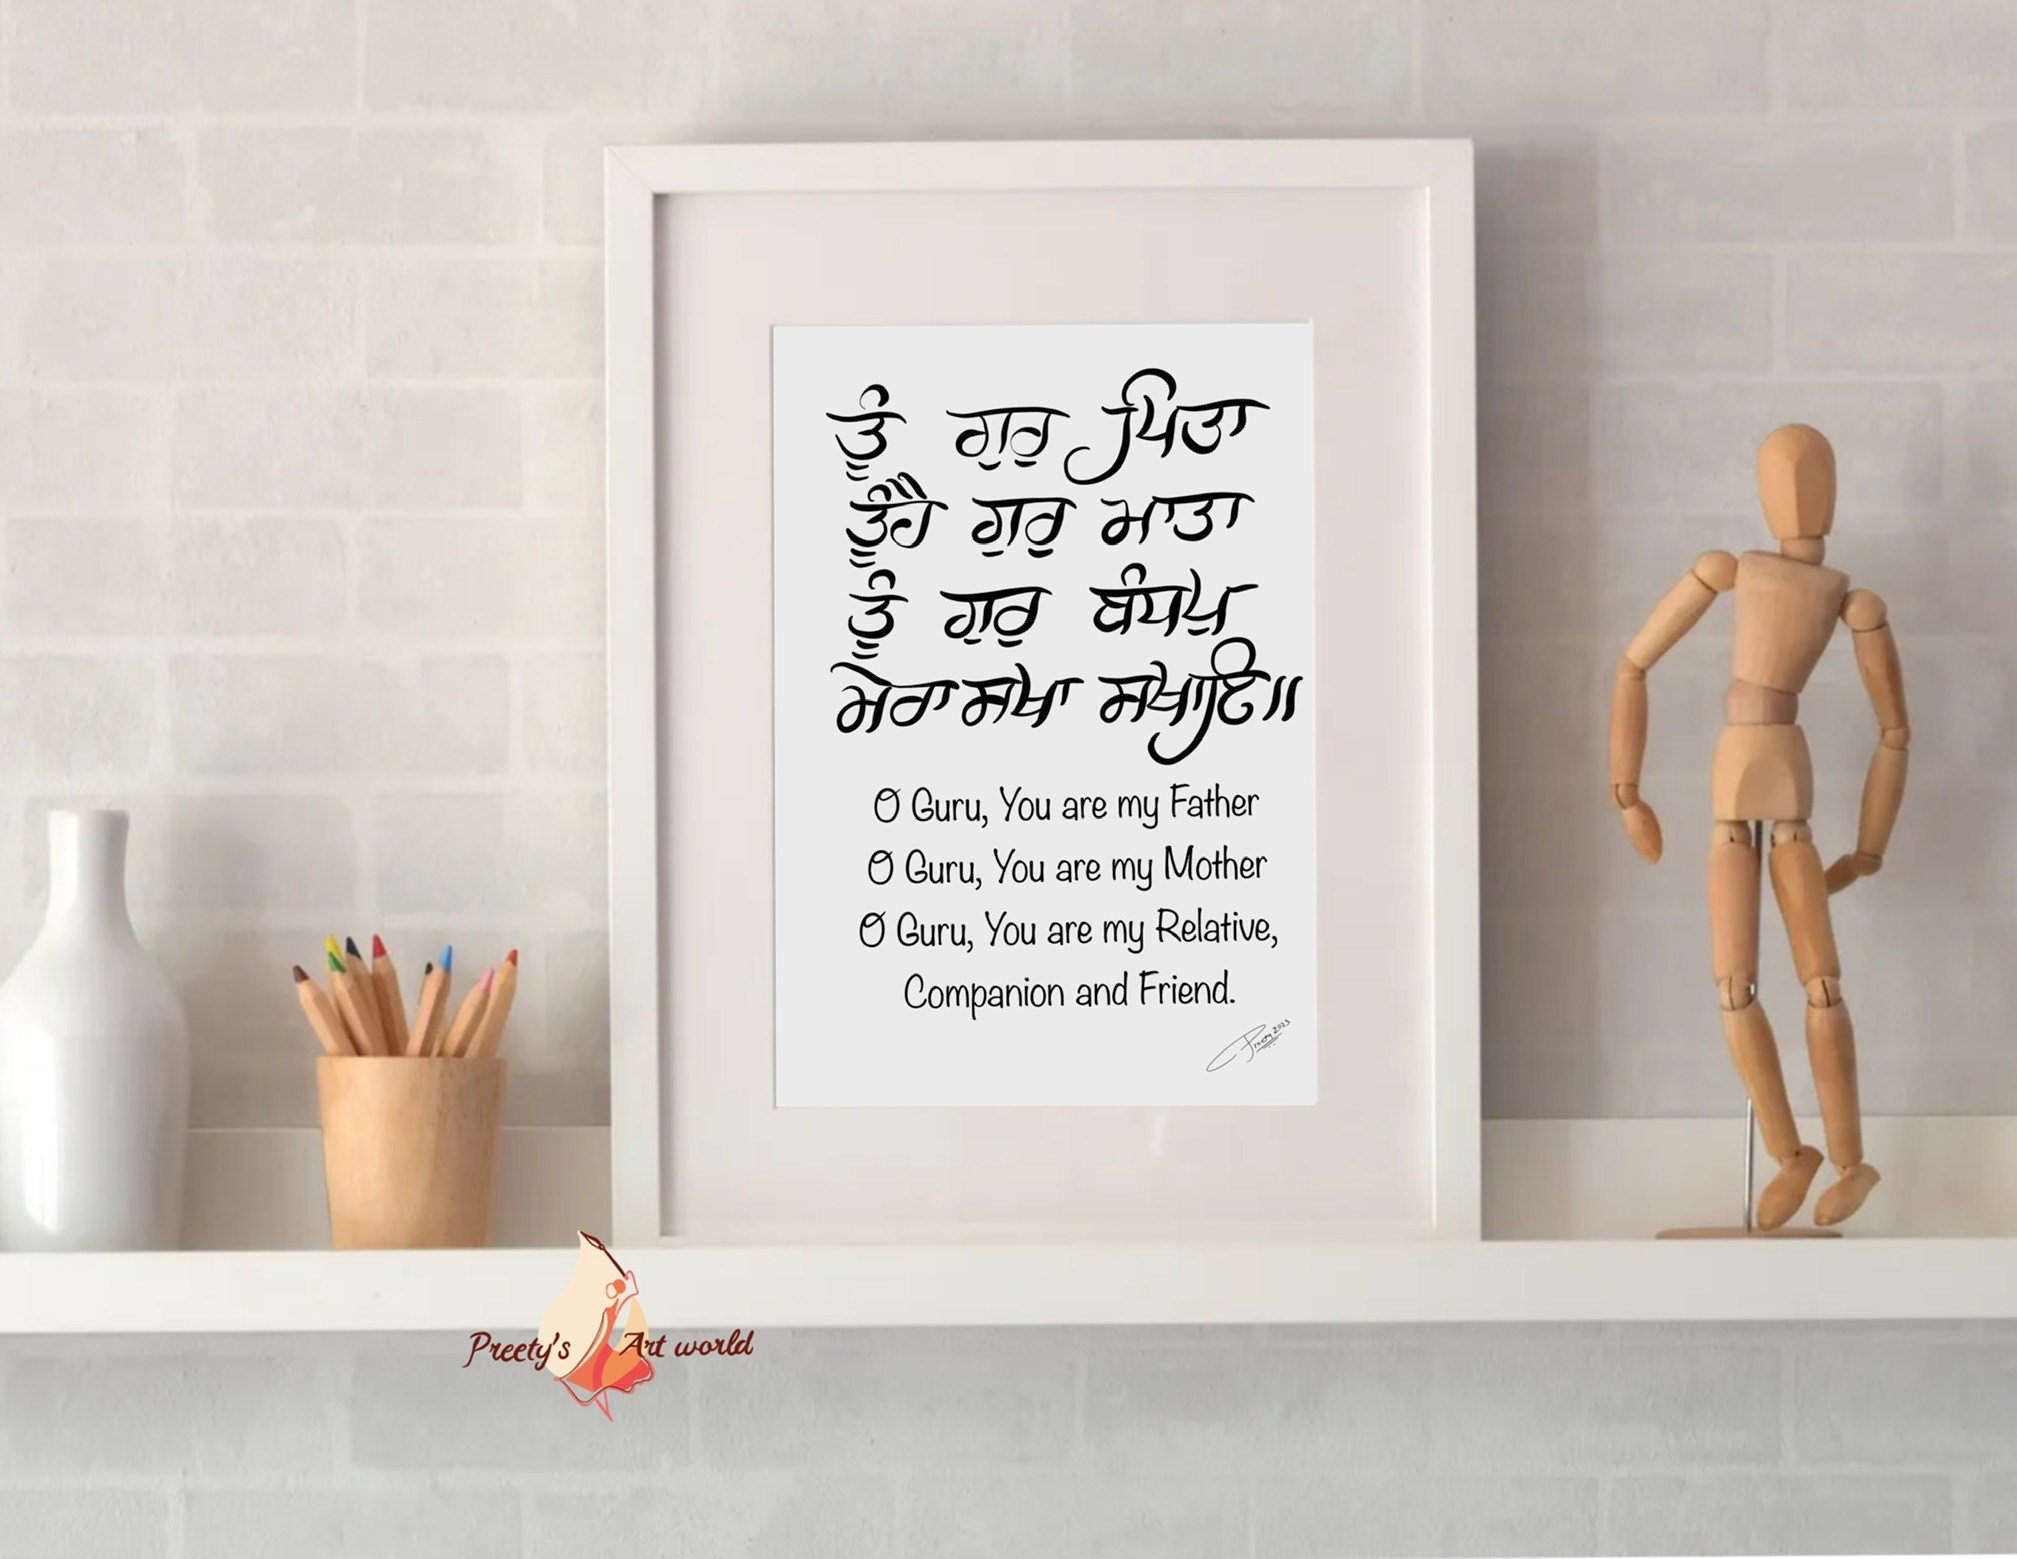 ਤੂੰ ਗੁਰੁ ਪਿਤਾ
ਤੂੰਹੈ ਗੁਰੁ ਮਾਤਾ
ਤੂੰ ਗੁਰੁ ਬੰਧਪੁ
ਮੇਰਾ ਸਖਾ ਸਖਾਇ॥
O Guru, You are my Father
O Guru, You are my Mother
O Guru, You are my Relative,
Companion and Friend.
Preety 2023
Preety's Art world